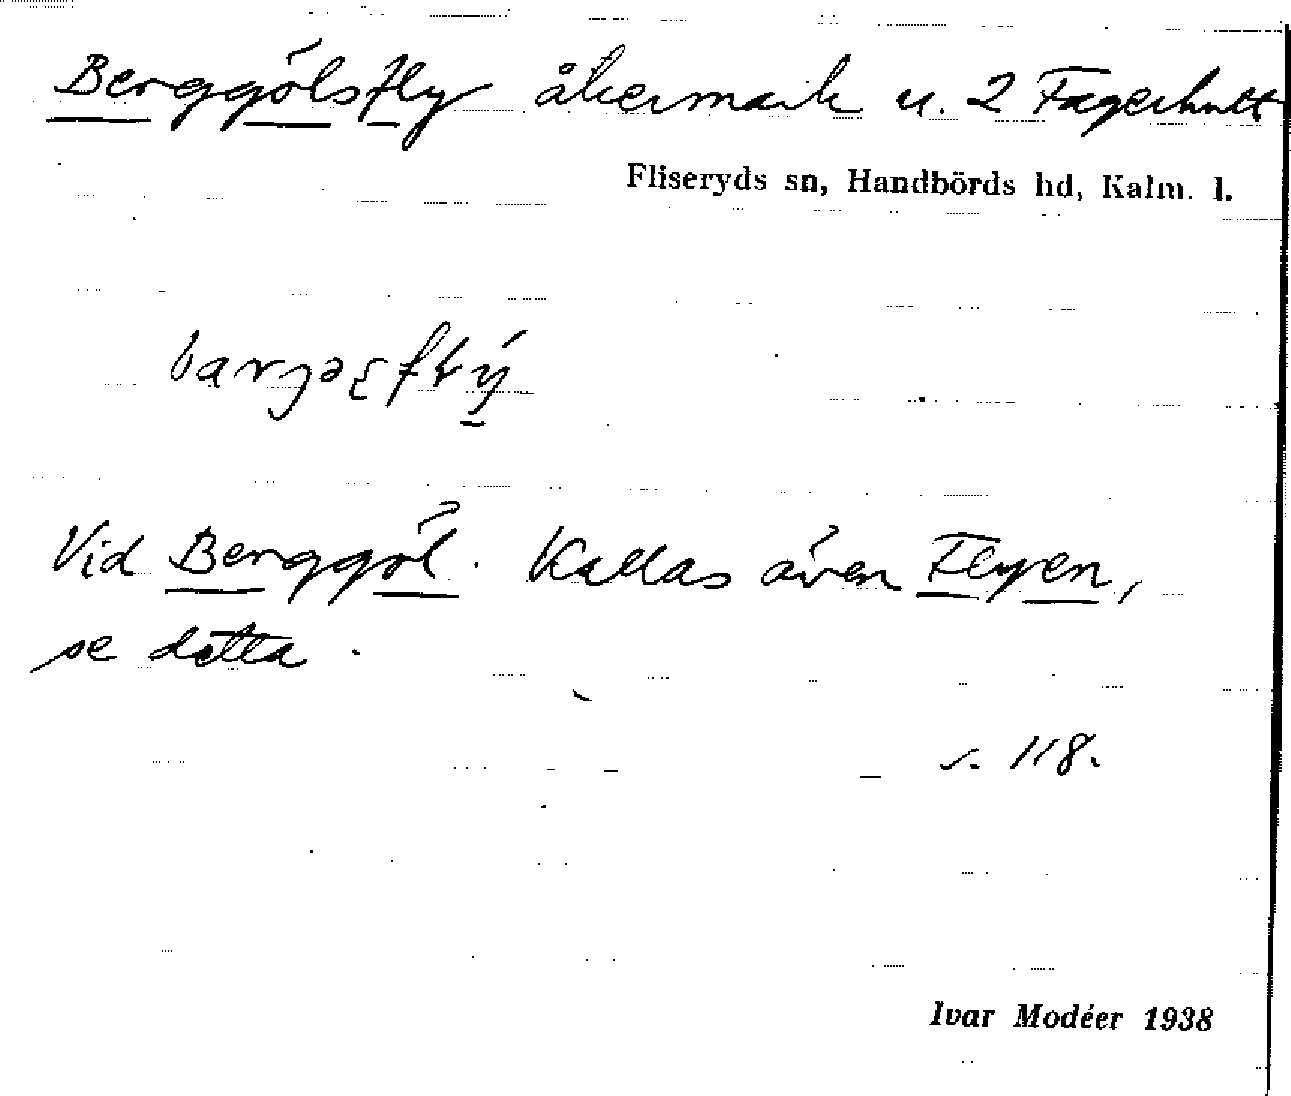 Berggölsfly åkermark u. 2 Fagerhult
Fliseryds sn, Handbörds hd, Kalm. l.
Vid Berggöl. Kallas även Flyen,
se detta.
s. 118.
Ivar Modéer 1938